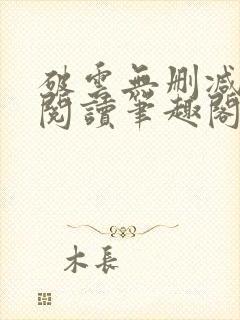 破雲無刪減
閱讀筆趣閣
木長